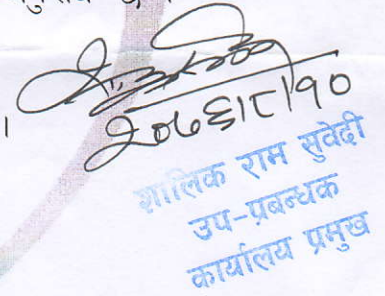 २०७६।८।१०
शालिक राम सुवेदी
उप-प्रबन्धक
कार्यालय प्रमुख